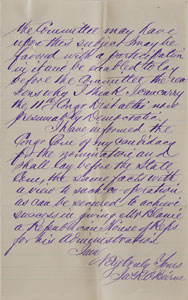 the Committee may have
upon this subject may be
favored with a participation
in if and be enabled to lay
before the Committee the rea
sons why I think I can carry
the 11th Cong. District this now
presumably Democratic.
I have informed the
Cong. Com. of my candidacy
for the nomination and
shall lay before the State
Com. the same facts with
a view to such co-operation
as can be secured to achieve
success in giving Mr. Blaine
a Republican House of Reps
for his Administration
I am
Very truly Yours